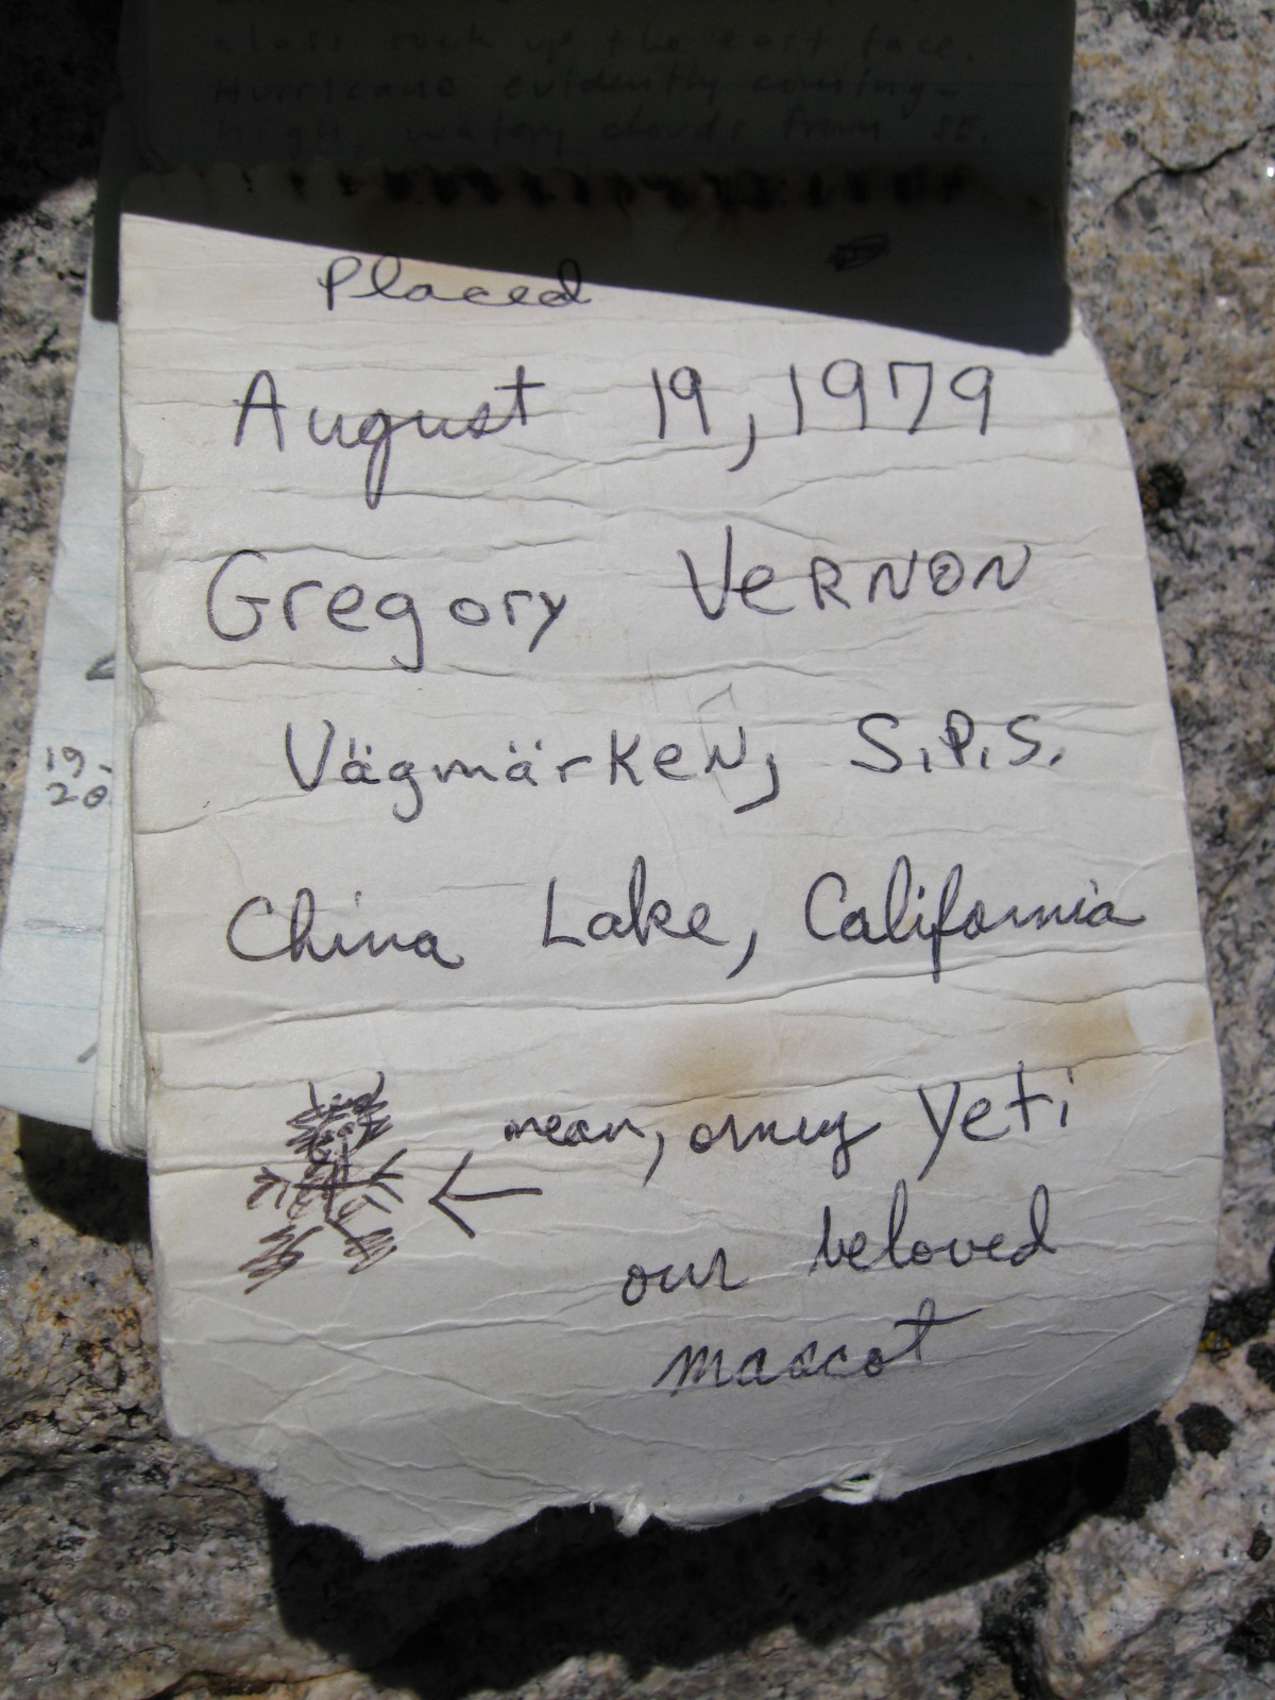 class rock up the east face.
Hurricane evidently coming –
high, watery clouds from SE.
Placed
August 19, 1979
Gregory VeRNON
VägmärkeN, S.P.S.
China Lake, California
19-
20
mean, ornery yeti
our beloved
mascot